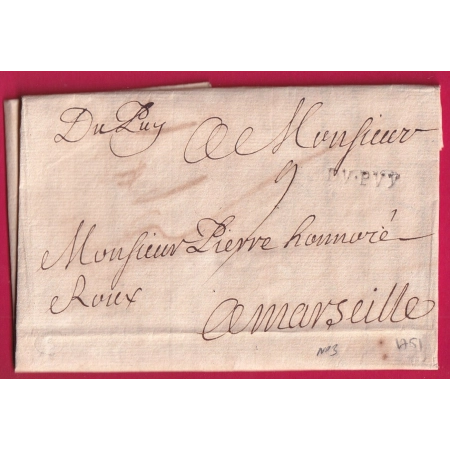 Du Puy
A Monsieur
9
DV.PVY
Monsieur Pierre honnoré
Roux
a marseille
N°3
1751